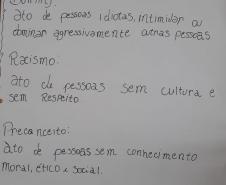 ato de pessoas idiotas, intimidar ou
dominar agressivamente outras pessoas
Racismo:
ato de pessoas sem cultura e
sem Respeito
Preconceito:
ato de pessoas sem conhecimento
moral, ético e social.